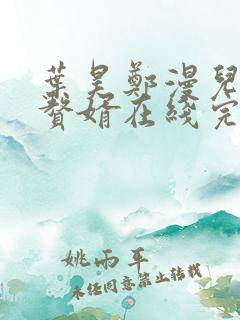 葉昊鄭漫兒
贅婿在线完
姚雨平
未经同意禁止转载